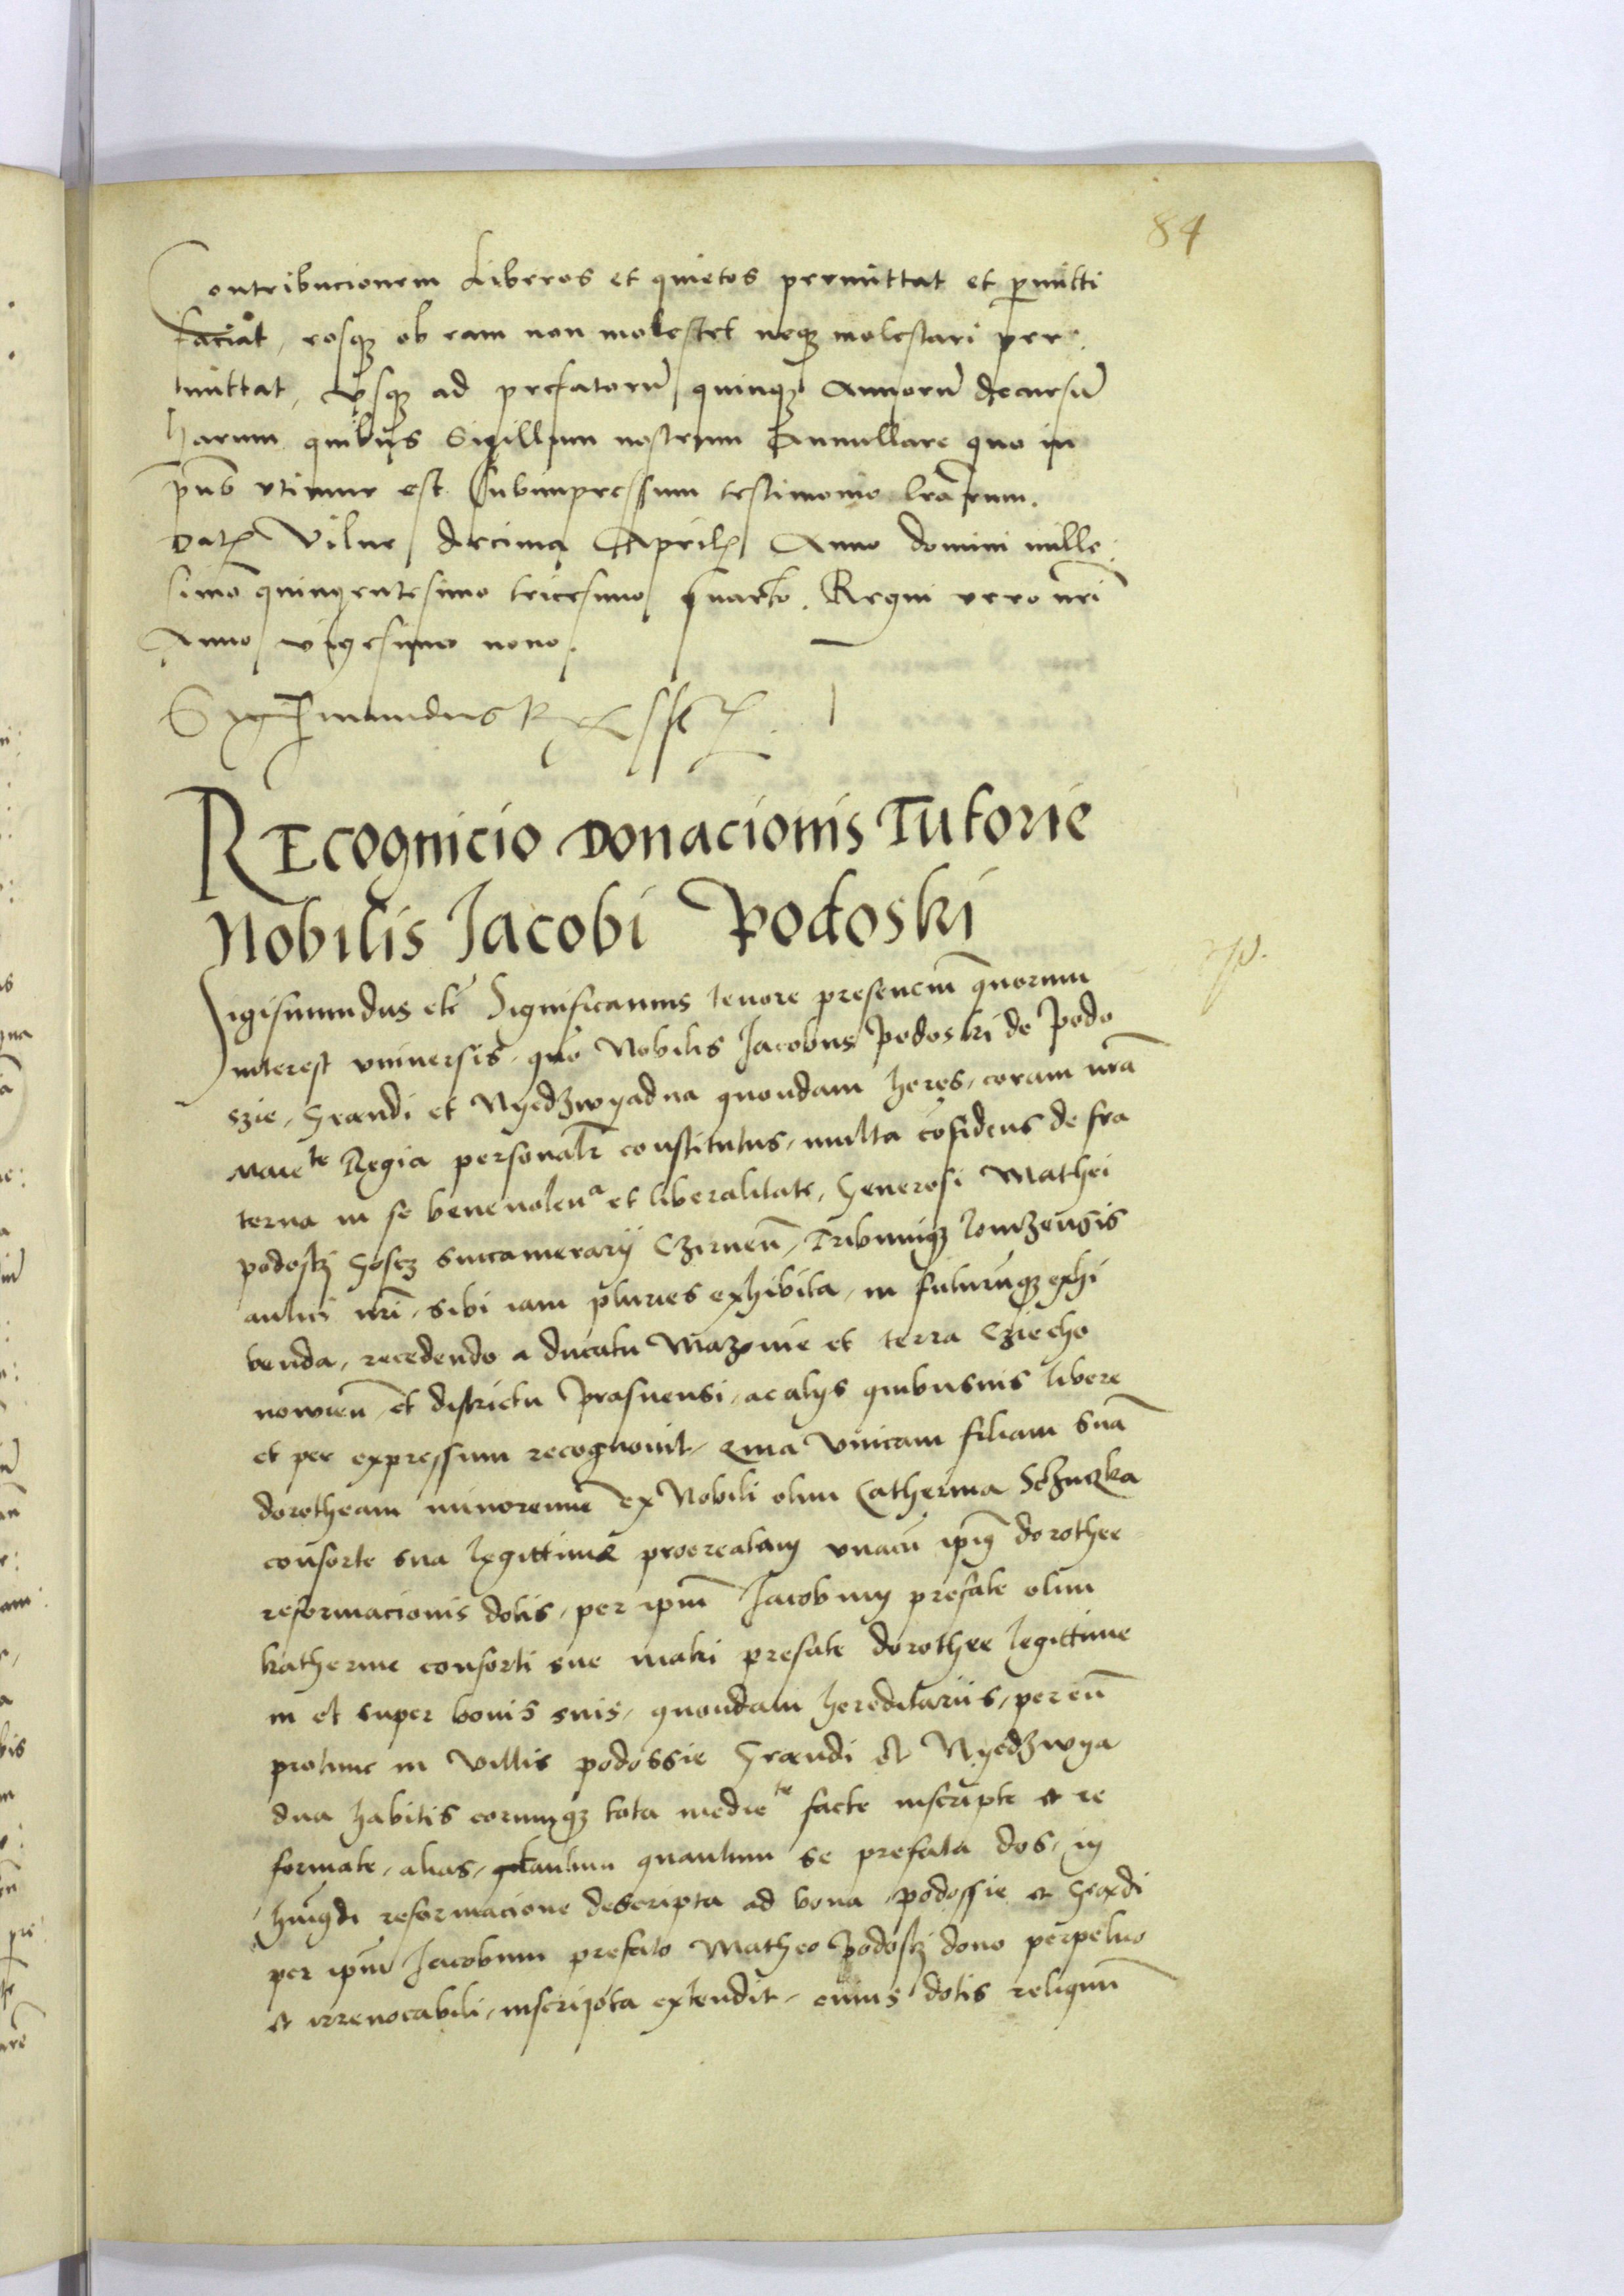 84
Contribucionem Liberos et quietos permittat et p̄mitti
faciat, eosqȝ ob eam non molestet neqȝ molestari per
mittat, vsqȝ ad prefatorū quinqȝ Annorū decursū
harum quibus Sigillum nostrum Annullare quo in
pn̄b utimur est Subimpressum testimonio lrārum.
Datȝ Vilne decima Aprilȝ Anno domini mille
simō quingentesimo tricesimo quarto. Regni vero nrī
Anno vigesimo nono.
Sygismundus R
REcognicio Donacionis Tutorie
Nobilis Jacobi Podoski
Sigismundus etc̄ Significamus tenore presenciū quorum
interest vniuersis, quō Nobilis Jacobus Podoski de Podo
szie, Grandi et Nyedzwyadna quondam heres, coram nrā
Maiete Regia personalr̄ constitutus, multa cōfidens de fra
terna in se beneuolena et liberalitate, Generosi Mathei
podoskj succamerarij Czirnen̄, Tribuniqȝ lomzensis
aulici nrī, sibi iam pluries exhibita, in futurūqȝ exhi
benda, recedendo a ducatu Mazouie et terra Cziecho
nowien̄, et districtu Prasnensi, ac alijs quibusuis libere
et per expressum recognouit, Qma vnicam filiam suā
dorotheam minorennē ex Nobili olim Catherina
consorte sua legittime procreatam vnacū ipiȝ dorothee
reformacionis dotis, per ipm̄ Jacobum prefate olim
katherine consorti sue matri prefate dorothee legittime
in et super bonis suis, quondam hereditariis, per eū
protunc in villis podossie Grandi et Nyedzwya
dna habitis eorumqȝ tota mediete facte inscripte et re
formate, alias, tantum quantum se prefata dos, in
hm̄gdi reformacione descripta ad bona podossie et Grādi
per ipm̄ Jacobum prefato Matheo Podoskj dono perpetuo
et irreuocabili, inscripta extendit, cuius dotis reliquū